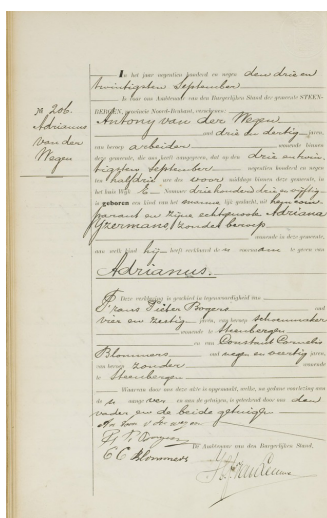 № 206.
Adrianus
van der
Wegen
In het jaar negentien honderd en negen den drie en
twintigsten September
is voor ons Ambtenaar van den Burgerlijken Stand der gemeente STEEN-
BERGEN, provincie Noord-Brabant, verschenen:
Antony van der Wegen
oud drie en dertig jaren,
van beroep arbeider wonende binnen
deze gemeente, die ons heeft aangegeven, dat op den drie en twin-
tigsten September negentien honderd en negen
te half drie ure des voor middags binnen deze gemeente, in
het huis Wijk E Nummer driehonderd drie en vijftig
is geboren een kind van het mannelijk geslacht, uit hem com-
parant en zijne echtgenoote Adriana
IJzermans, zonder beroep,
wonende in deze gemeente,
aan welk kind hij heeft verklaard de voornaam te geven van
Adrianus.
Deze verklaring is geschied in tegenwoordigheid van
Frans Pieter Bogers oud
vier en zestig jaren, van beroep schoenmaker
wonende te Steenbergen
en van Constant Cornelis
Blommers oud negen en veertig jaren,
van beroep zonder wonende
te Steenbergen
Waarvan door ons deze akte is opgemaakt, welke, na gedane voorlezing aan
de en aan de getuigen, is geteekend door ons den
vader en de beide getuigen
C C Blommers
De Ambtenaar van den Burgerlijken Stand,